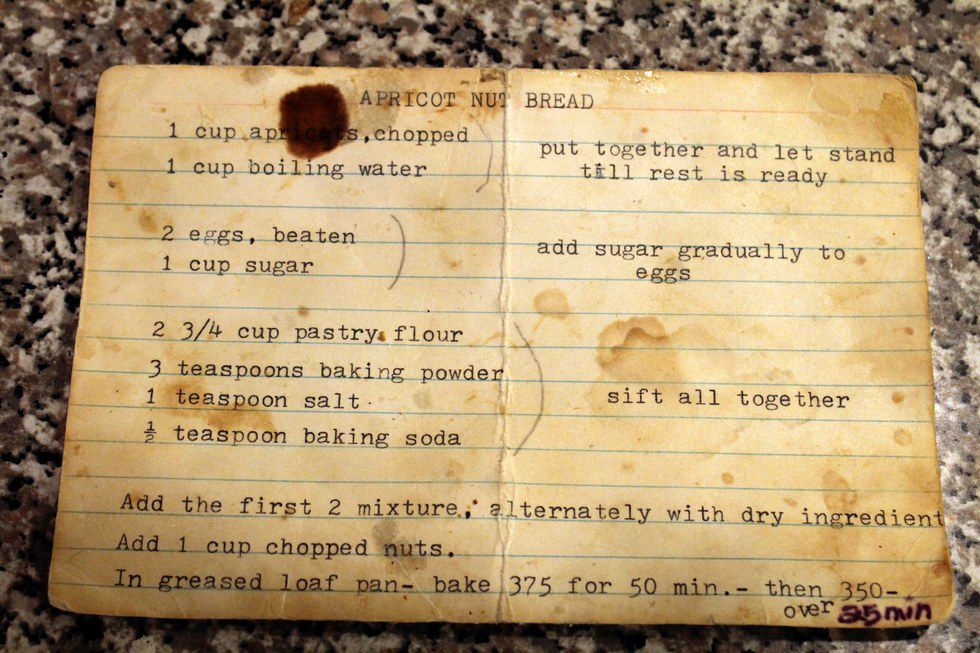 APRICOT NUT BREAD
1 cup apricots,chopped
1 cup boiling water
put together and let stand
till rest is ready
2 eggs, beaten
1 cup sugar
add sugar gradually to
eggs
2 3/4 cup pastry flour
3 teaspoons baking powder
1 teaspoon salt
½ teaspoon baking soda
sift all together
Add the first 2 mixture, alternately with dry ingredient
Add 1 cup chopped nuts.
In greased loaf pan- bake 375 for 50 min.- then 350-
over min